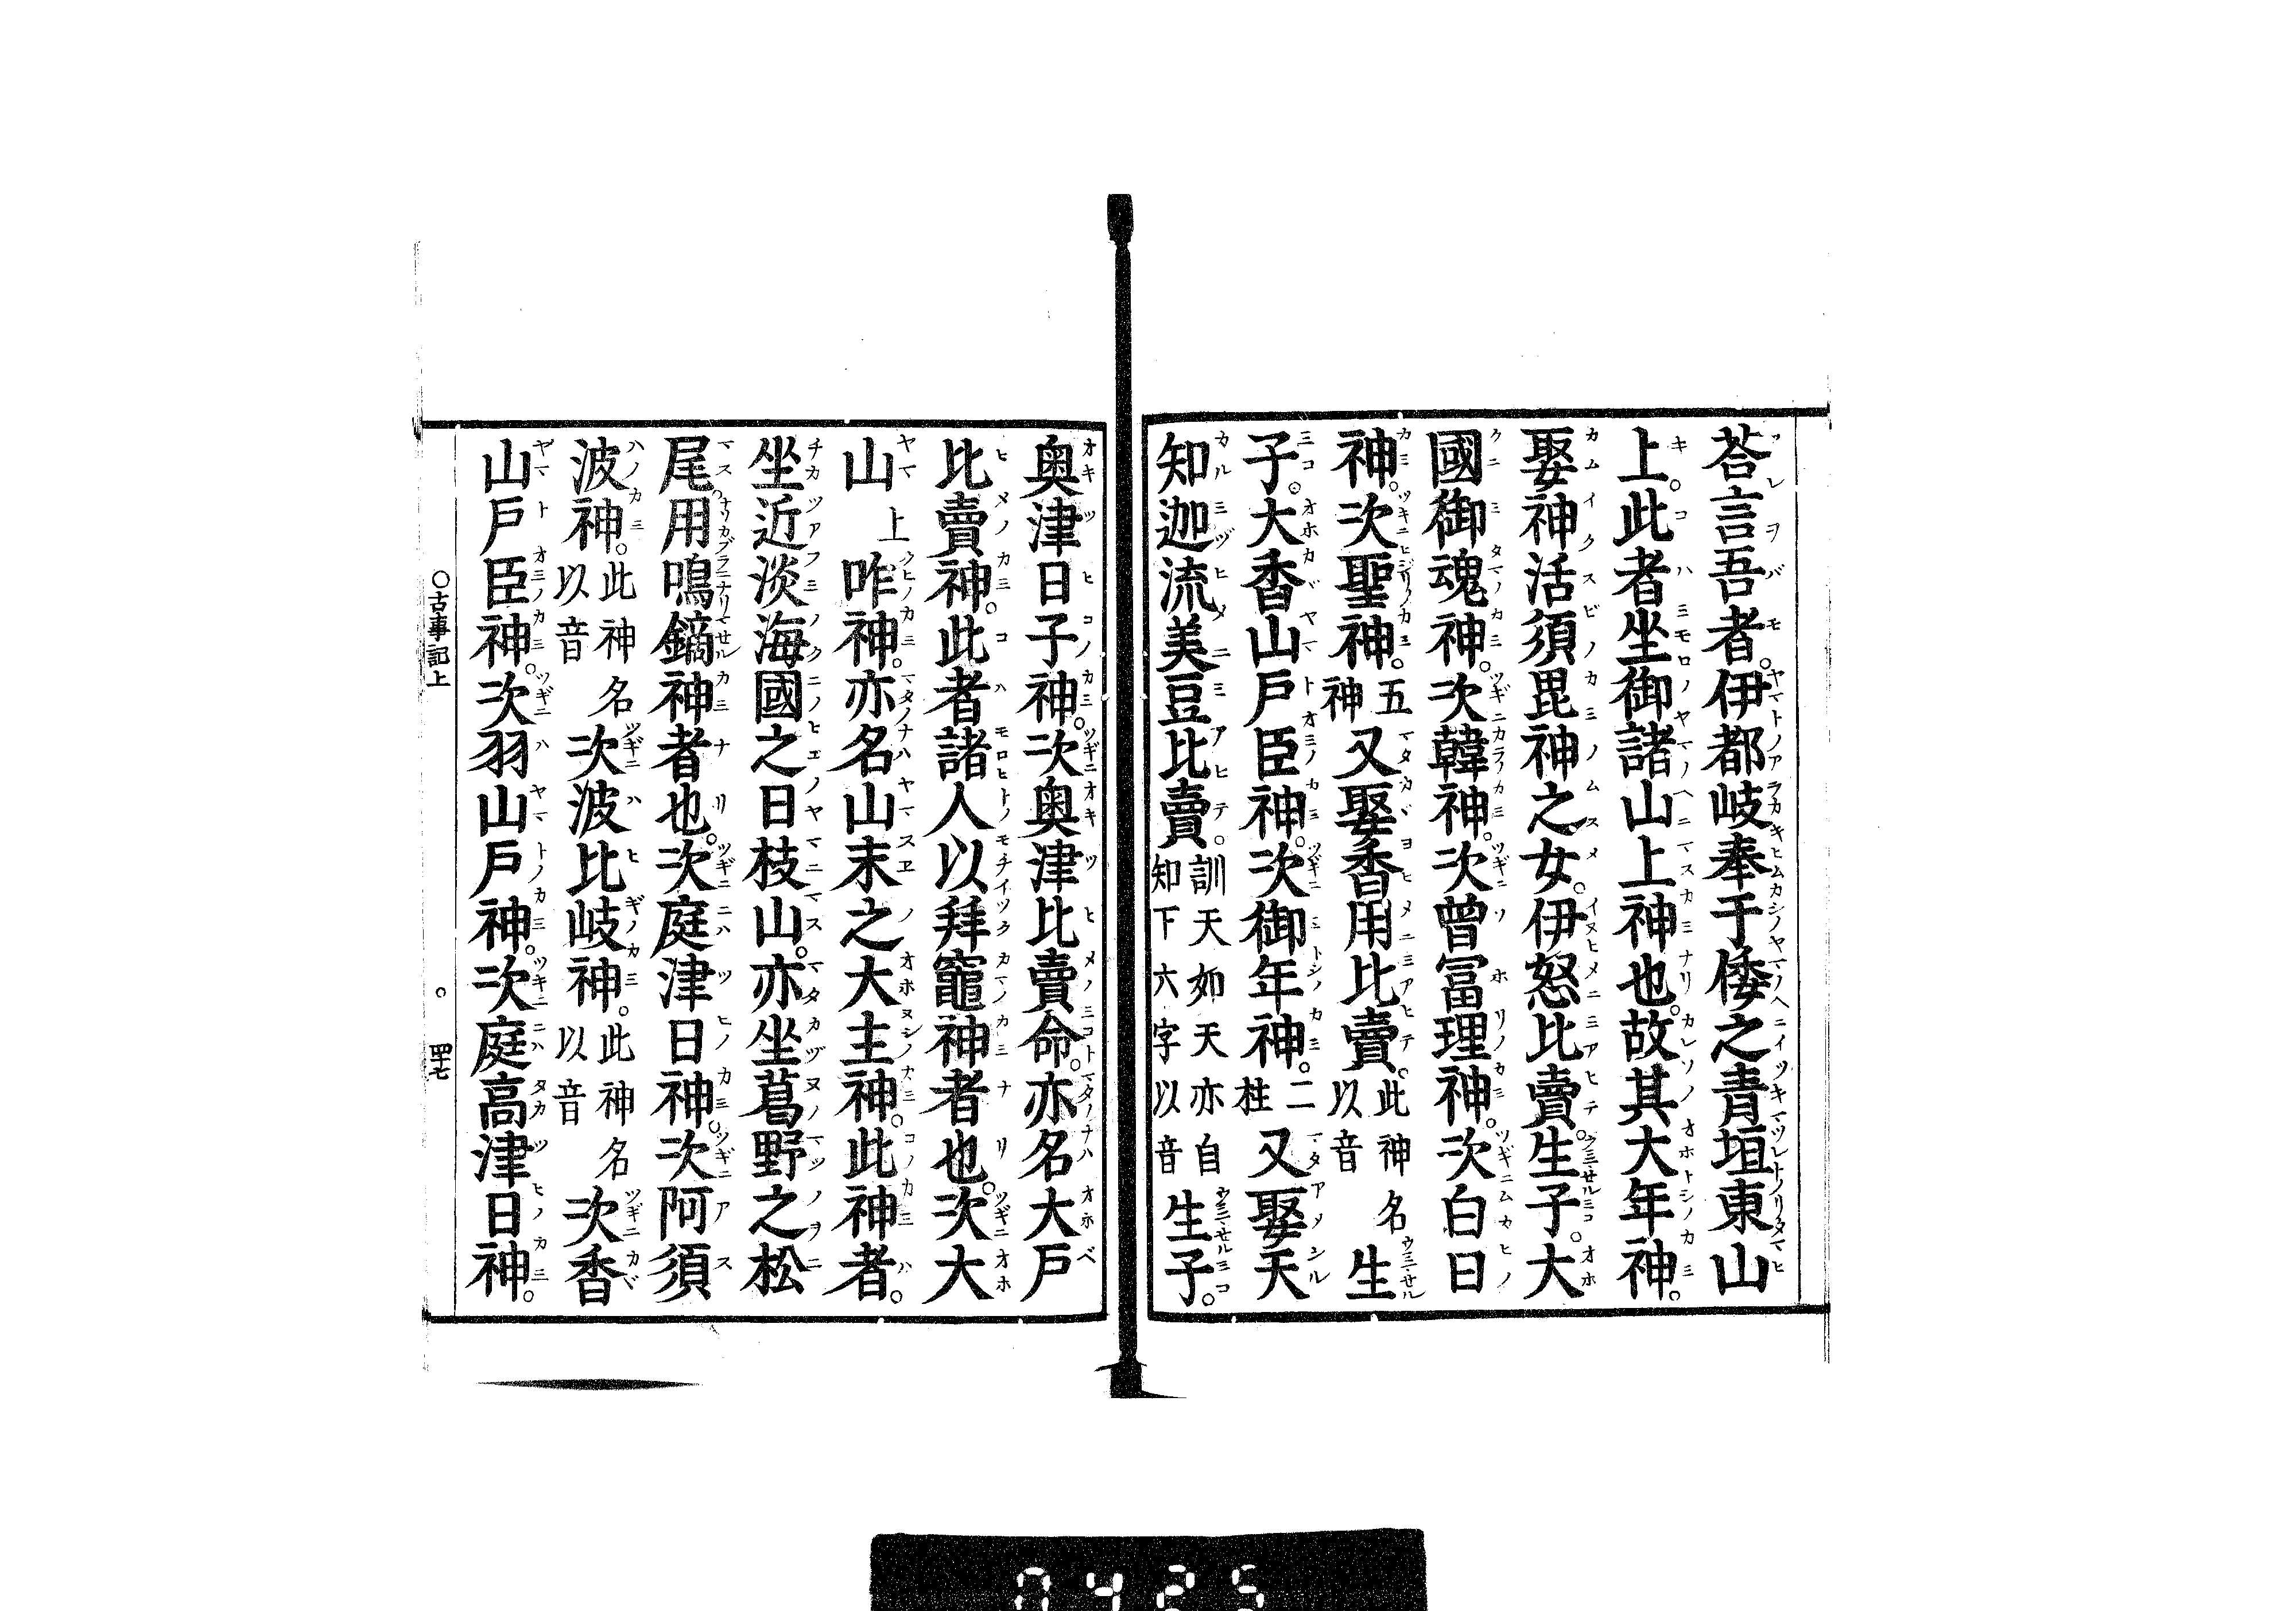 荅言吾者。伊都岐奉于倭之青垣東山
上。此者坐御諸山上神也。故其大年神。
娶神活須毘神之女。伊怒比賣。生子。大
國御魂神。次韓神。次曾富理神。次白日
神。次聖神。五神又娶香用比賣。此神名以音生
子。大香山戸臣神。次御年神。二柱又娶天
知迦流美豆比賣。訓天如天亦自知下六字以音生子。
奧津日子神。次奧津比賣命。亦名大戸
比賣神。此者諸人以拜竈神者也。次大
山上咋神。亦名山末之大主神。此神者。
坐近淡海國之日枝山。亦坐葛野之松
尾。用鳴鏑神者也。次庭津日神。次阿須
波神。此神名以音次波比岐神。此神名以音次香
山戸臣神。次羽山戸神。次庭高津日神。
○古事記上 ○ 四十七
0425